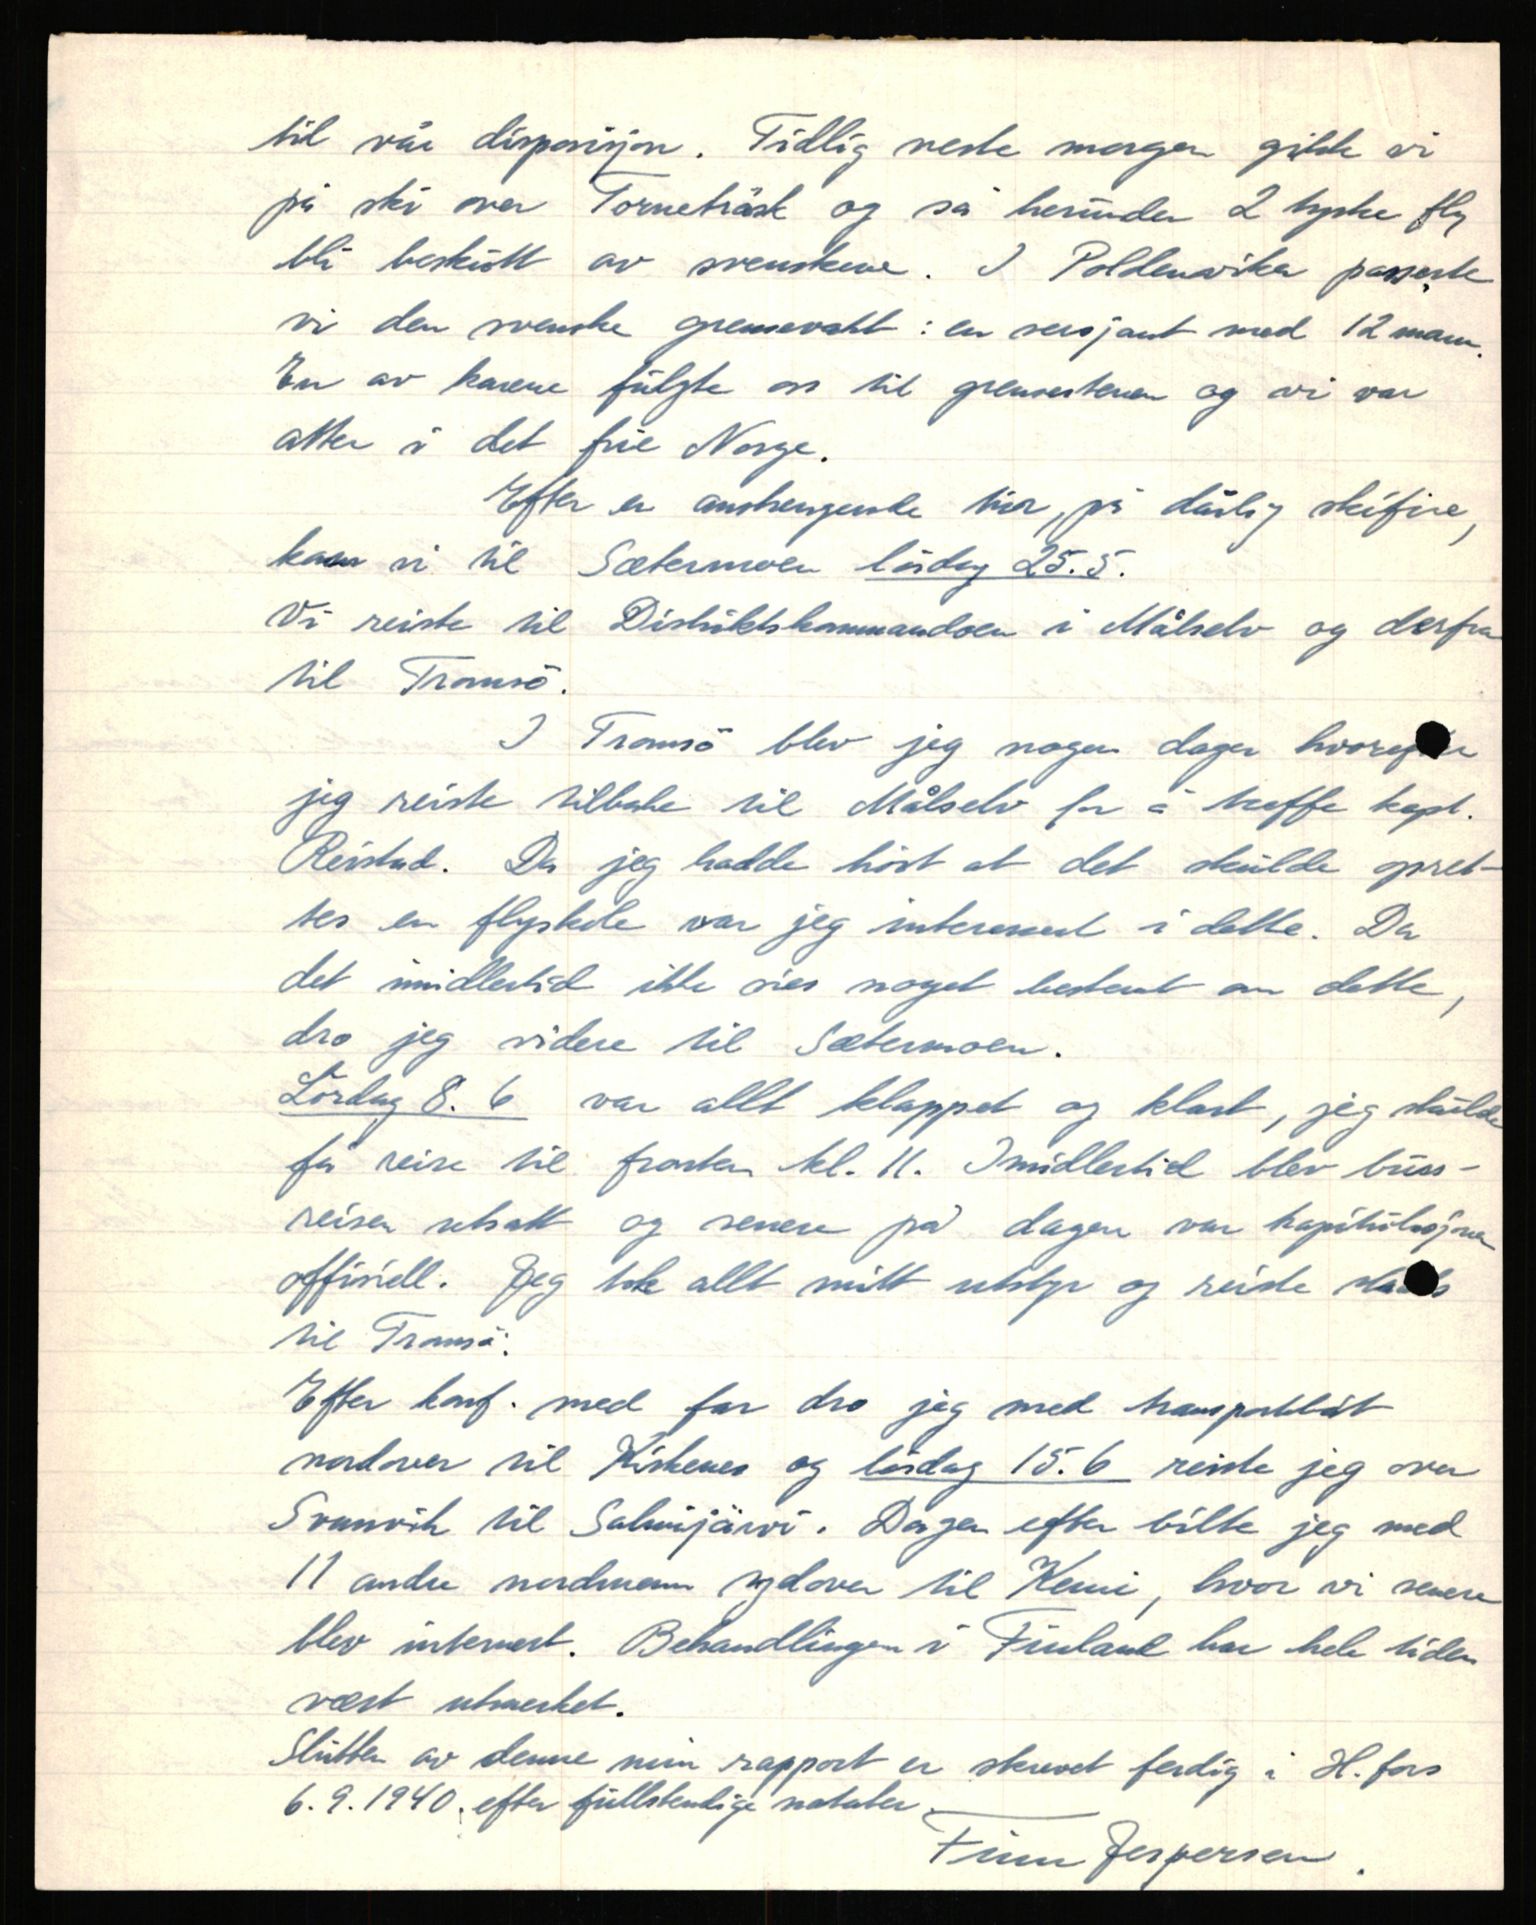 til vår disposisjon. Tidlig neste morgen gikk vi
på ski over Torneträsk og så herunder 2 tyske fly
bli beskutt av svenskene. I Poldenvika passerte
vi den svenske grensevakt: en sersjant med 12 mann.
En av karene fulgte oss til grensestenen og vi var
atter i det frie Norge.
Efter en anstrengende tur, på dårlig skiføre,
kom vi til Sætermoen lördag 25.5.
Vi reiste til Distriktskommandoen i Målselv og derfra
til Tromsö.
I Tromsö blev jeg nogen dager hvorefter
jeg reiste tilbake til Målselv for å treffe kapt.
Reistad. Da jeg hadde hört at det skulde opret-
tes en flyskole var jeg interessert i dette. Da
det imidlertid ikke vies noget bestemt om dette,
dro jeg videre til Sætermoen.
Lördag 8.6 var allt klappet og klart, jeg skulde
få reise til fronten kl. 11. Imidlertid blev buss-
reisen utsatt og senere på dagen var kapitulasjonen
offisiell. Jeg tok allt mitt utstyr og reiste straks
til Tromsö.
Efter konf. med far dro jeg med transportbåt
nordover til Kirkenes og lördag 15.6 reiste jeg over
Svanvik til Salmijärvi. Dagen efter bilte jeg med
11 andre nordmenn sydover til Kemi, hvor vi senere
blev internert. Behandlingen i Finland har hele tiden
vært utmerket.
Slutten av denne min rapport er skrevet ferdig i H.fors
6.9.1940. efter fullstendige notater.
Finn Jespersen.